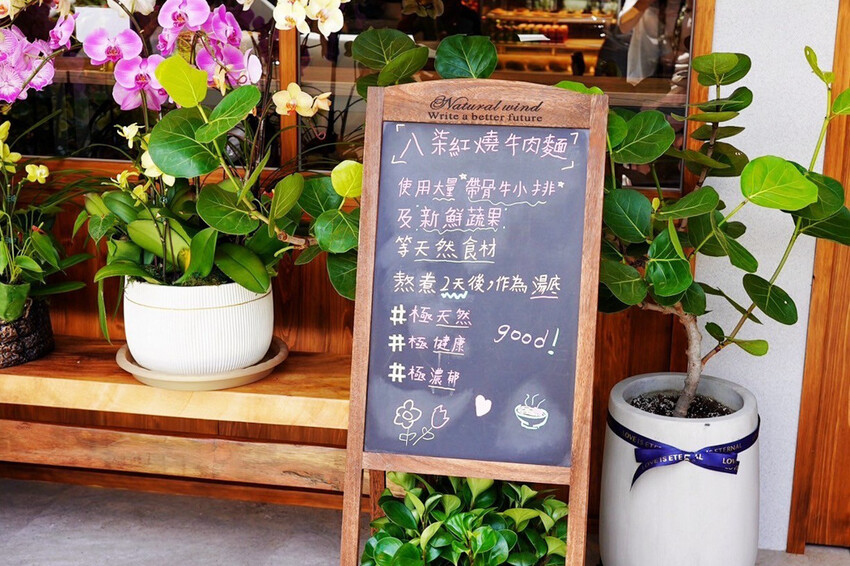 Natural wind
Write a better future
八柒紅燒牛肉麵
使用大量"帶骨牛小排"
及新鮮蔬果
等天然食材
熬煮2天後,作為湯底
#極天然
#極健康
good!
#極濃郁
LOVE IS ETERNAL